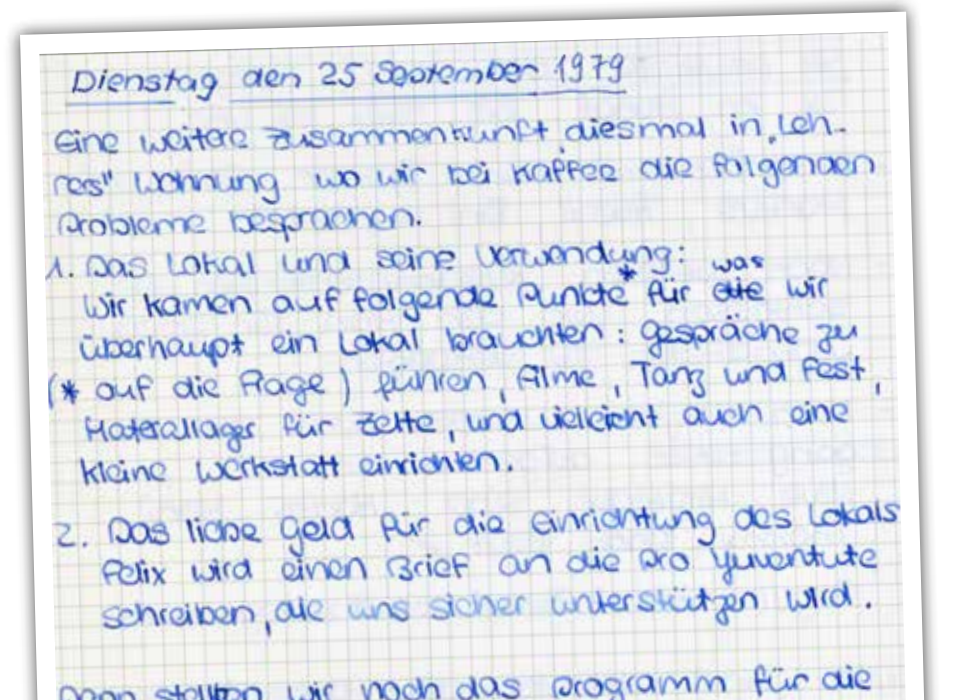 Dienstag den 25 September 1979
Eine weitere Zusammenkunft diesmal in "Leh-
rers" Wohnung wo wir bei Kaffee die folgenden
Probleme besprachen.
1. Das Lokal und seine Verwendung:
was
Wir kamen auf folgende Punkte * für die wir
überhaupt ein Lokal brauchten: gespräche zu
(* auf die Frage) führen, Filme, Tanz und Fest,
Materallager für Zelte, und vielleicht auch eine
kleine Werkstatt einrichten.
2. Das liebe Geld für die Einrichtung des Lokals
Felix wird einen Brief an die pro Yuventute
schreiben, die uns sicher unterstützen wird.
Dann stellten wir noch das programm für die